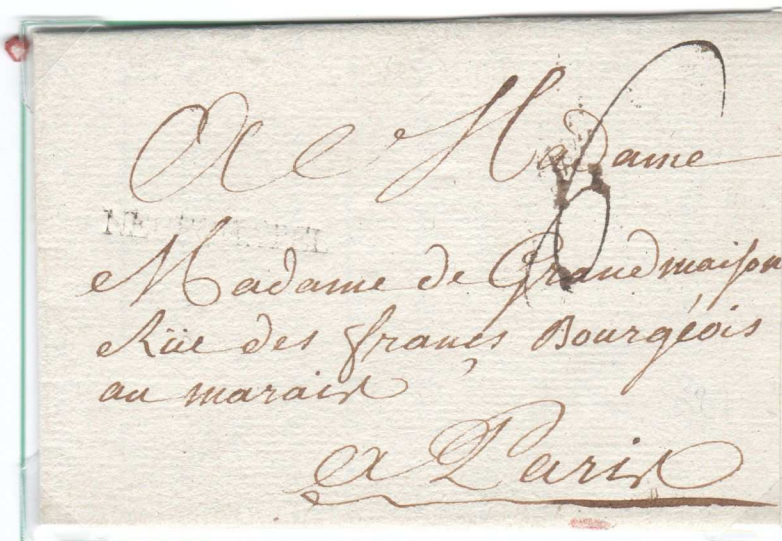 A Madame
6
NEUFCHATEL
Madame de Grandmaison
Rüe des francs Bourgeois
au marais
a Paris